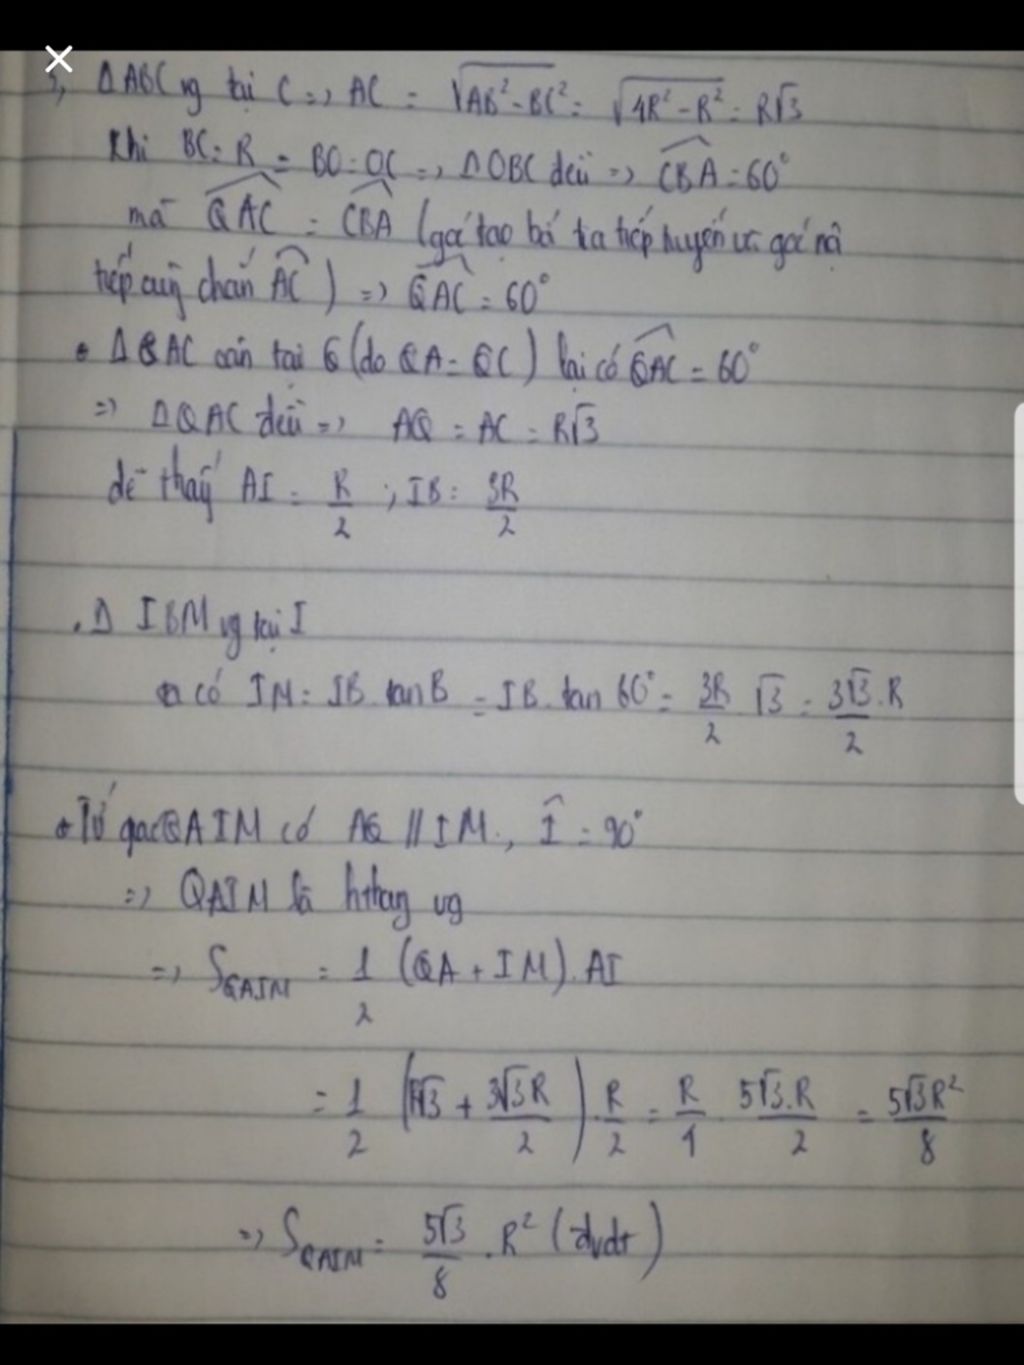 3, ΔABC vg tại C => AC = √AB² - BC² = √4R² - R² = R√3
Khi BC = R = BO = OC => ΔOBC đều => CBA = 60°
mà QAC = CBA (góc tạo bởi tia tiếp tuyến và góc nội
tiếp cùng chắn AC) => QAC = 60°
• ΔQAC cân tại Q (do QA = QC) lại có QAC = 60°
=> ΔQAC đều => AQ = AC = R√3
dễ thấy AI = R/2 ; IB = 3R/2
. Δ IBM vg tại I
có IM = IB tan B = IB. tan 60° = 3R/2 √3 = 3√3.R/2
• Tứ giác QAIM có AQ // IM., I = 90°
=> QAIM là hthang vg
=> S_QAIM = 1/2 (QA + IM). AI
= 1/2 (R√3 + 3√3R/2). R/2 = R/4 5√3.R/2 = 5√3R²/8
=> S_QAIM = 5√3/8 . R² (đvdt)